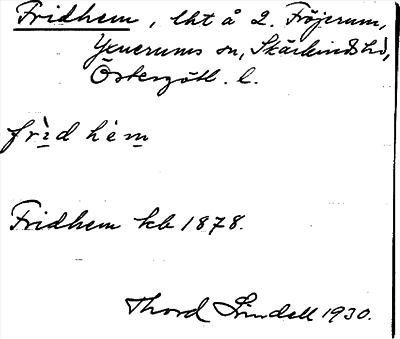 Fridhem, lht å 2. Fröjerum,
Yxnerums sn, Skärkinds hd,
Östergötl. l.
frìd hèm
Fridhem kb 1878.
Thord Lindell 1930.